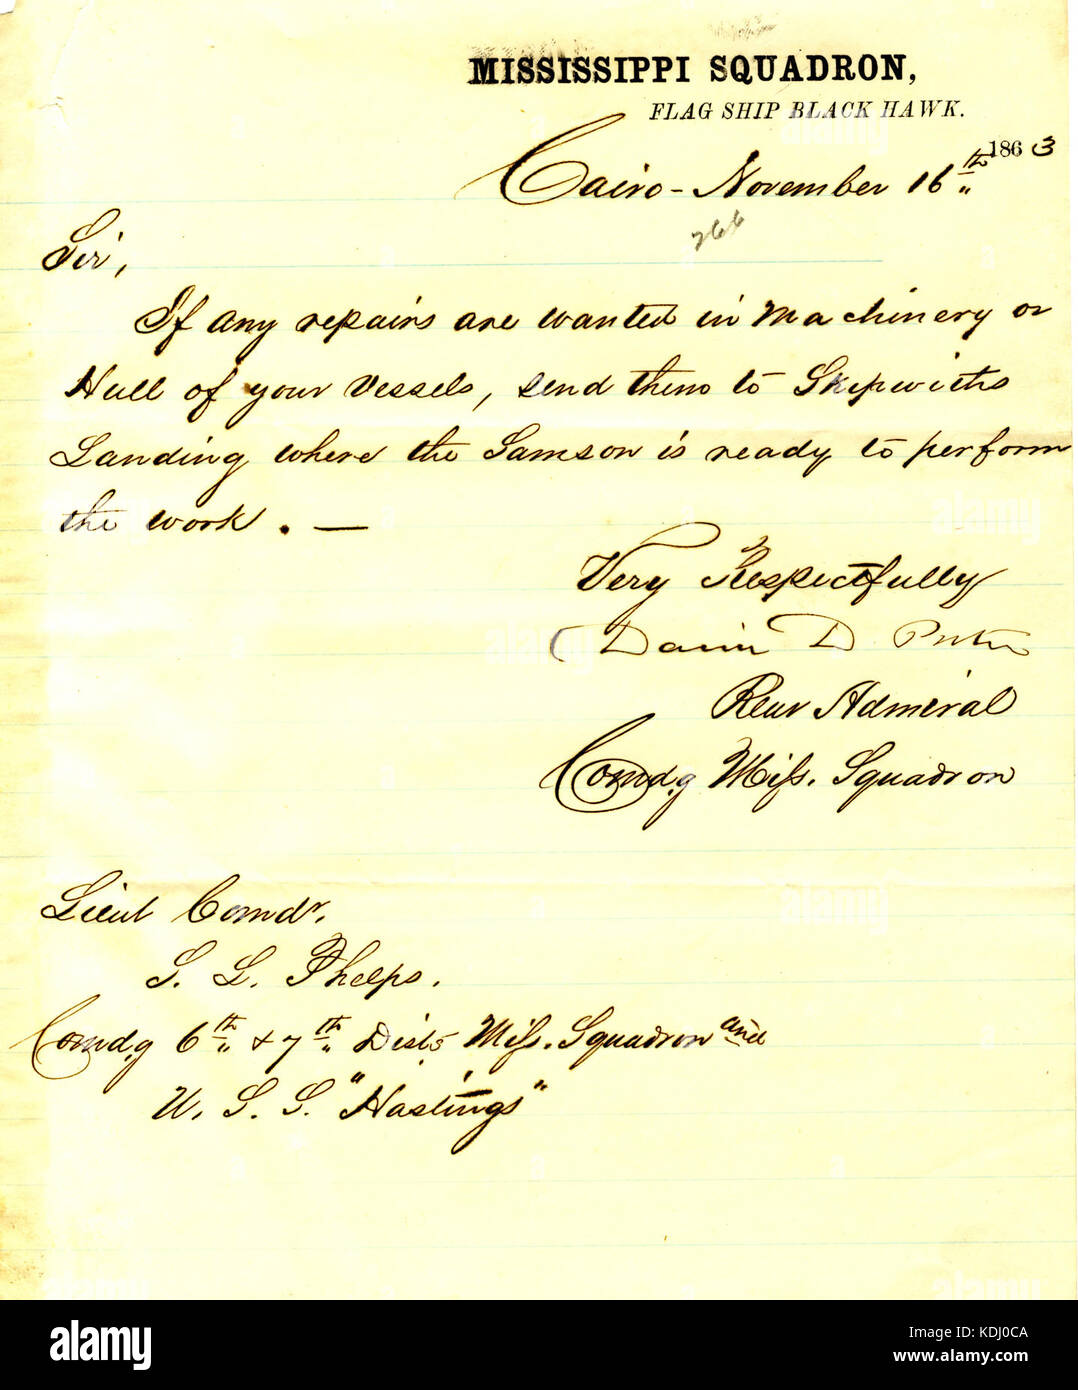 MISSISSIPPI SQUADRON,
FLAG SHIP BLACK HAWK.
Cairo - November 16th 1863
266
Sir,
If any repairs are wanted in Machinery or
Hull of your Vessels, send them to Skipwiths
Landing where the Samson is ready to perform
the work. —
Very Respectfully
David D. Porter
Rear Admiral
Comdg Miss. Squadron
Lieut Comdr.
S. L. Phelps.
Comdg 6th & 7th Dists Miss. Squadron and
U. S. S. "Hastings"
alamy
alamy
alamy
alamy
alamy
alamy
alamy
Image ID: KDJ0CA
www.alamy.com